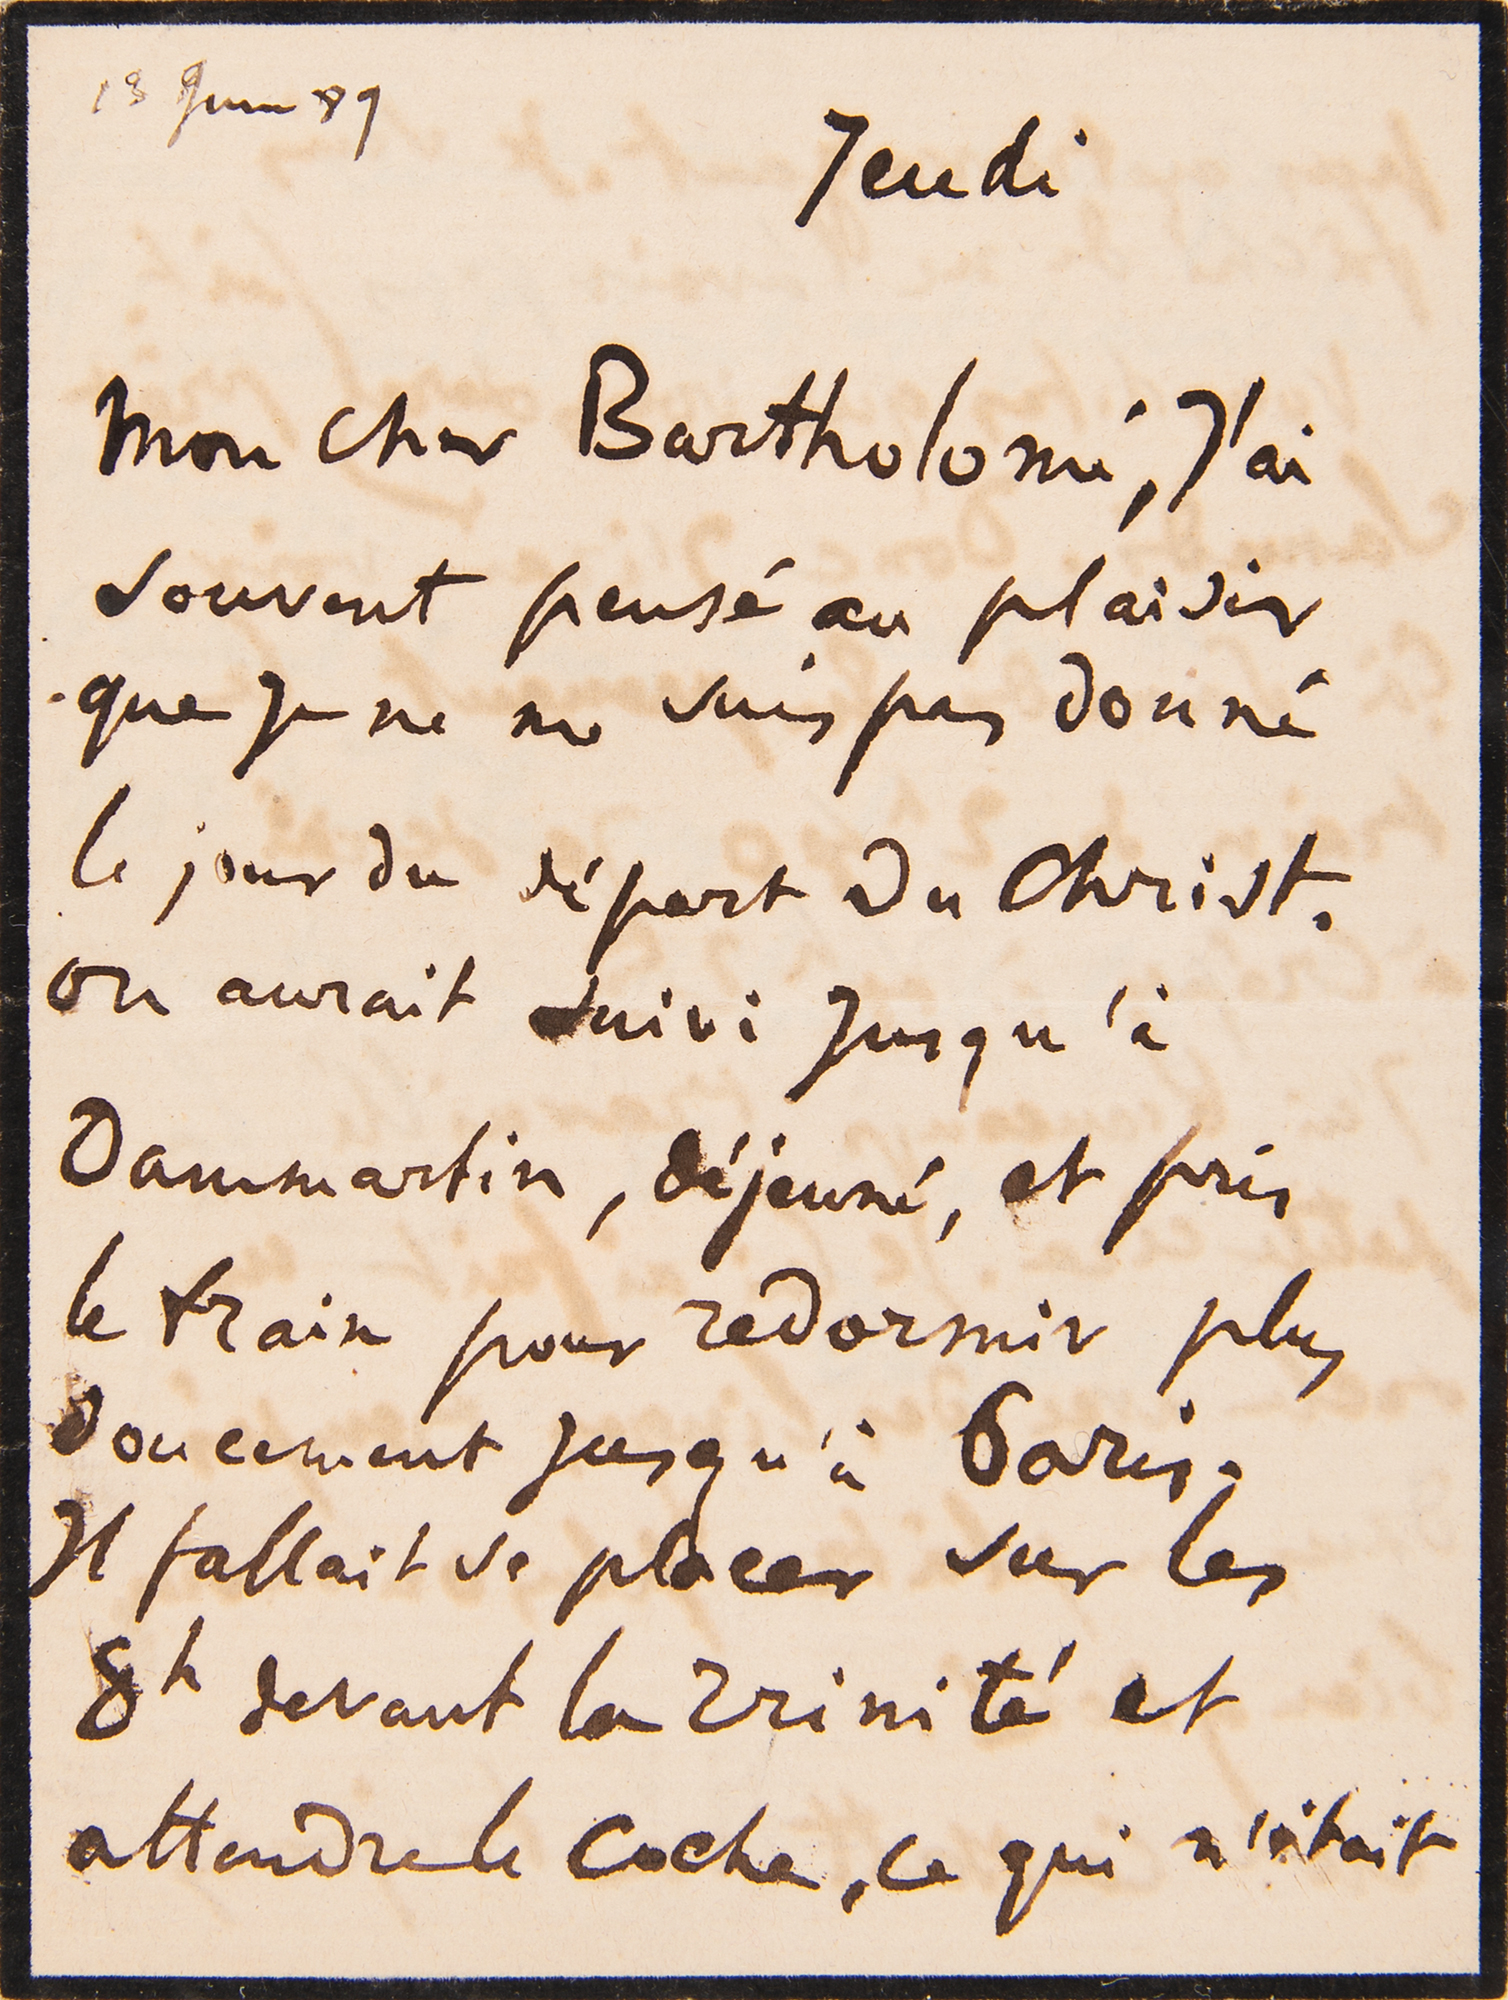 13 Juin 89
Jeudi
Mon cher Bartholomé, J'ai
souvent pensé au plaisir
que je ne me suis pas donné
le jour du départ du Christ.
On aurait suivi jusqu'à
Dammartin, déjeuné, et pris
le train pour redormir plus
doucement jusqu'à Paris.
Il fallait se placer sur les
8h devant la Trinité et
attendre le Coche, ce qui n'était